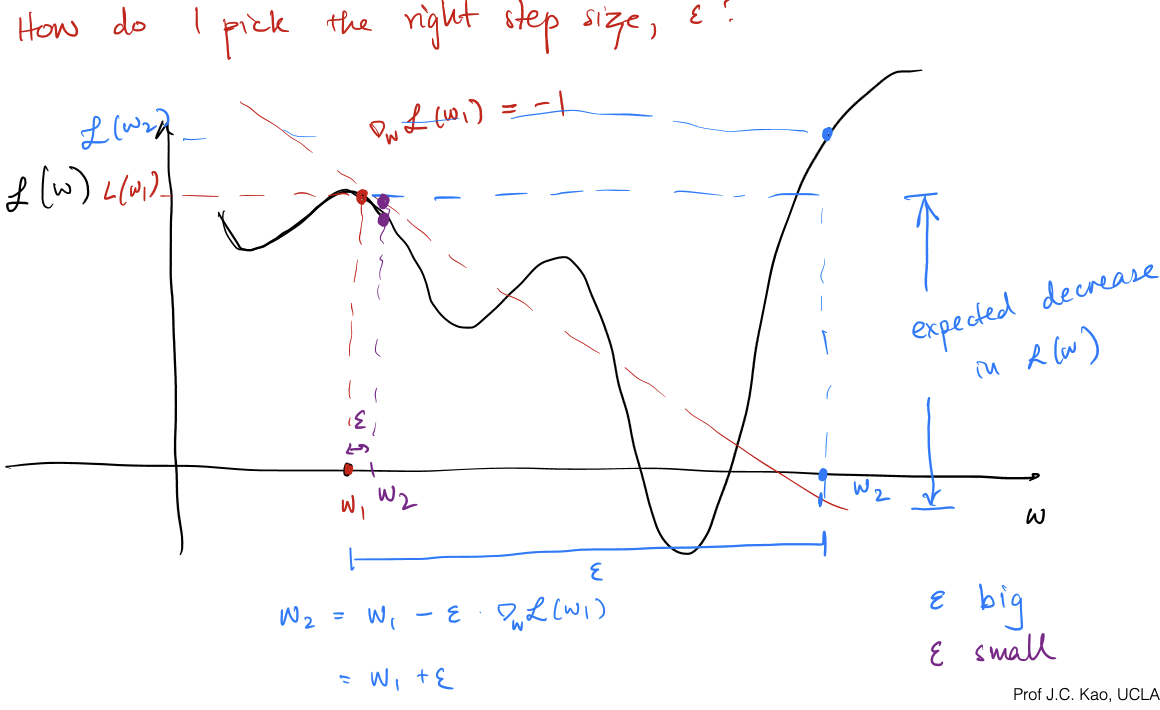 How do I pick the right step size, ε?
∇_w ℒ(w₁) = -1
ℒ(w₂)
ℒ(w) L(w₁)
expected decrease
in ℒ(w)
ε
w₁ w₂
w₂
w
ε
w₂ = w₁ - ε · ∇_w ℒ(w₁)
= w₁ + ε
ε big
ε small
Prof J.C. Kao, UCLA